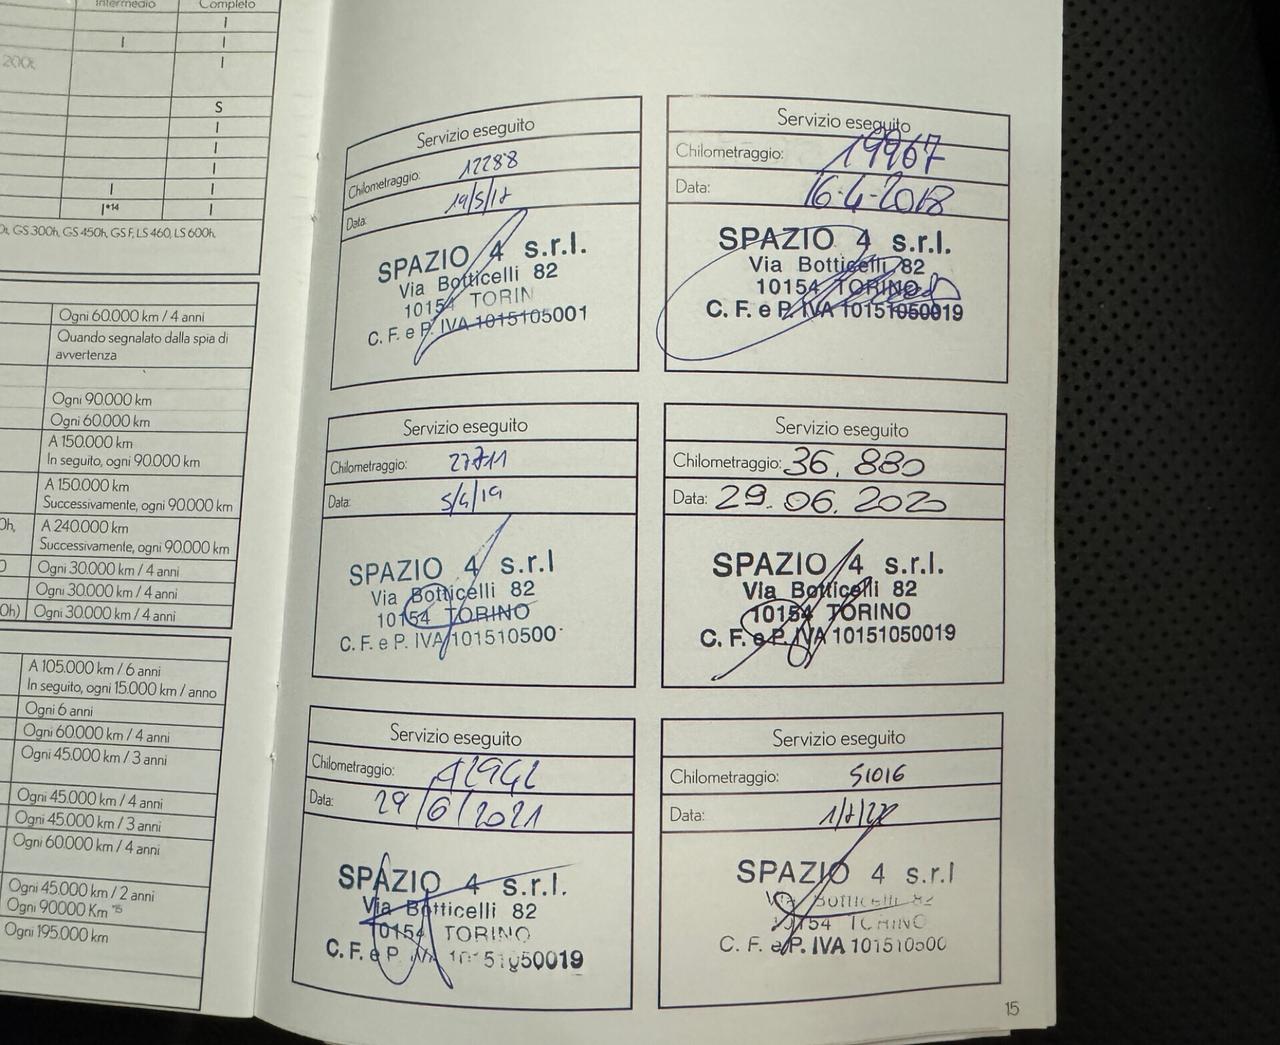 Intermedio Completo
I
I I
200t, I
S
I
I
I
I I
I*14 I
GS 300h, GS 450h, GS F, LS 460, LS 600h,
Ogni 60.000 km / 4 anni
Quando segnalato dalla spia di
avvertenza
Ogni 90.000 km
Ogni 60.000 km
A 150.000 km
In seguito, ogni 90.000 km
A 150.000 km
Successivamente, ogni 90.000 km
A 240.000 km
Successivamente, ogni 90.000 km
Ogni 30.000 km / 4 anni
Ogni 30.000 km / 4 anni
Ogni 30.000 km / 4 anni
A 105.000 km / 6 anni
In seguito, ogni 15.000 km / anno
Ogni 6 anni
Ogni 60.000 km / 4 anni
Ogni 45.000 km / 3 anni
Ogni 45.000 km / 4 anni
Ogni 45.000 km / 3 anni
Ogni 60.000 km / 4 anni
Ogni 45.000 km / 2 anni
Ogni 90000 Km *15
Ogni 195.000 km
Servizio eseguito
Chilometraggio: 12288
Data: 19/5/17
SPAZIO 4 s.r.l.
Via Botticelli 82
10154 TORIN
C. F. e P. IVA 1015105001
Servizio eseguito
Chilometraggio: 19967
Data: 16-4-2018
SPAZIO 4 s.r.l.
Via Botticelli 82
10154 TORINO
C. F. e P. IVA 10151050019
Servizio eseguito
Chilometraggio: 27711
Data: 5/4/19
SPAZIO 4 s.r.l
Via Botticelli 82
10154 TORINO
C. F. e P. IVA 101510500
Servizio eseguito
Chilometraggio: 36.880
Data: 29.06.2020
SPAZIO 4 s.r.l.
Via Botticelli 82
10154 TORINO
C. F. e P. IVA 10151050019
Servizio eseguito
Chilometraggio: 42942
Data: 29/6/2021
SPAZIO 4 s.r.l.
Via Botticelli 82
10154 TORINO
C. F. e P. IVA 10151050019
Servizio eseguito
Chilometraggio: 51016
Data: 1/7/22
SPAZIO 4 s.r.l
Via Botticelli 82
10154 TORINO
C. F. e P. IVA 101510500
15